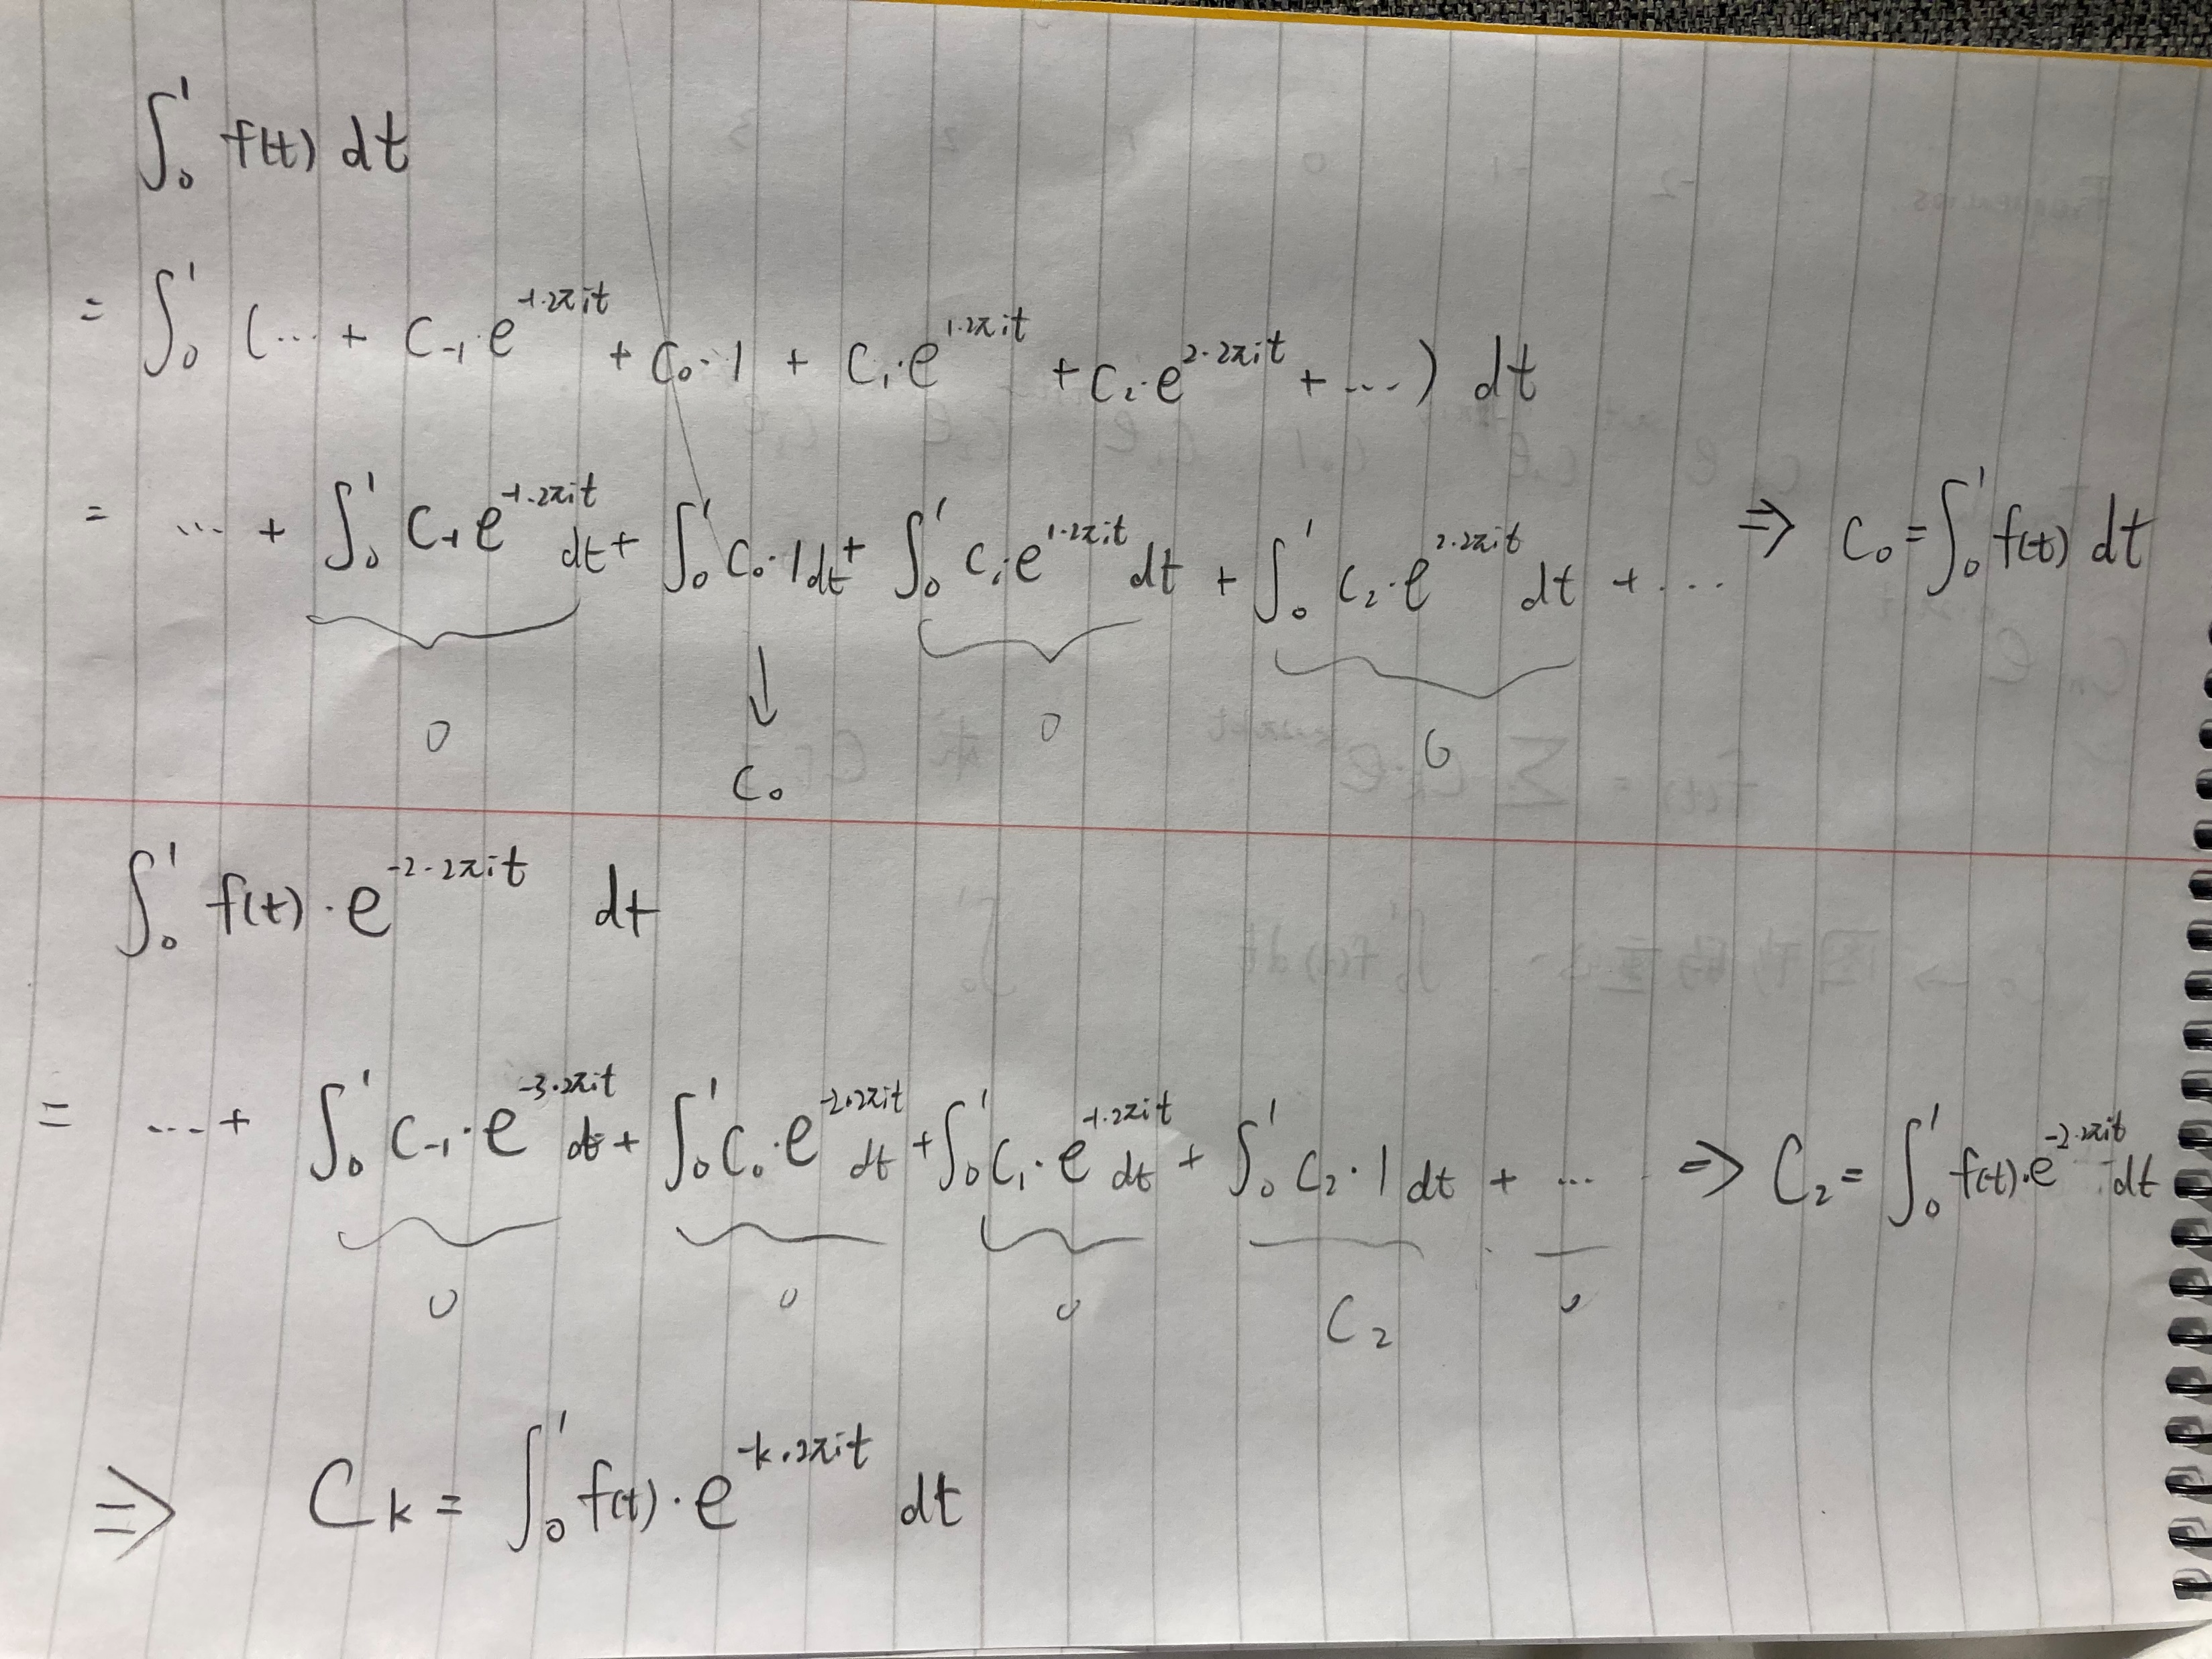 ∫₀¹ f(t) dt
= ∫₀¹ (… + C₋₁·e^(-1·2πit) + C₀·1 + C₁·e^(1·2πit) + C₂·e^(2·2πit) + …) dt
= … + ∫₀¹ C₋₁e^(-1·2πit) dt + ∫₀¹ C₀·1dt + ∫₀¹ C₁·e^(1·2πit) dt + ∫₀¹ C₂·e^(2·2πit) dt + … ⇒ C₀ = ∫₀¹ f(t) dt
0 ↓ 0 0
C₀
∫₀¹ f(t)·e^(-2·2πit) dt
= … + ∫₀¹ C₋₁·e^(-3·2πit) dt + ∫₀¹ C₀·e^(-2·2πit) dt + ∫₀¹ C₁·e^(-1·2πit) dt + ∫₀¹ C₂·1 dt + … ⇒ C₂ = ∫₀¹ f(t)·e^(-2·2πit) dt
0 0 0 C₂ 0
⇒ Cₖ = ∫₀¹ f(t)·e^(-k·2πit) dt